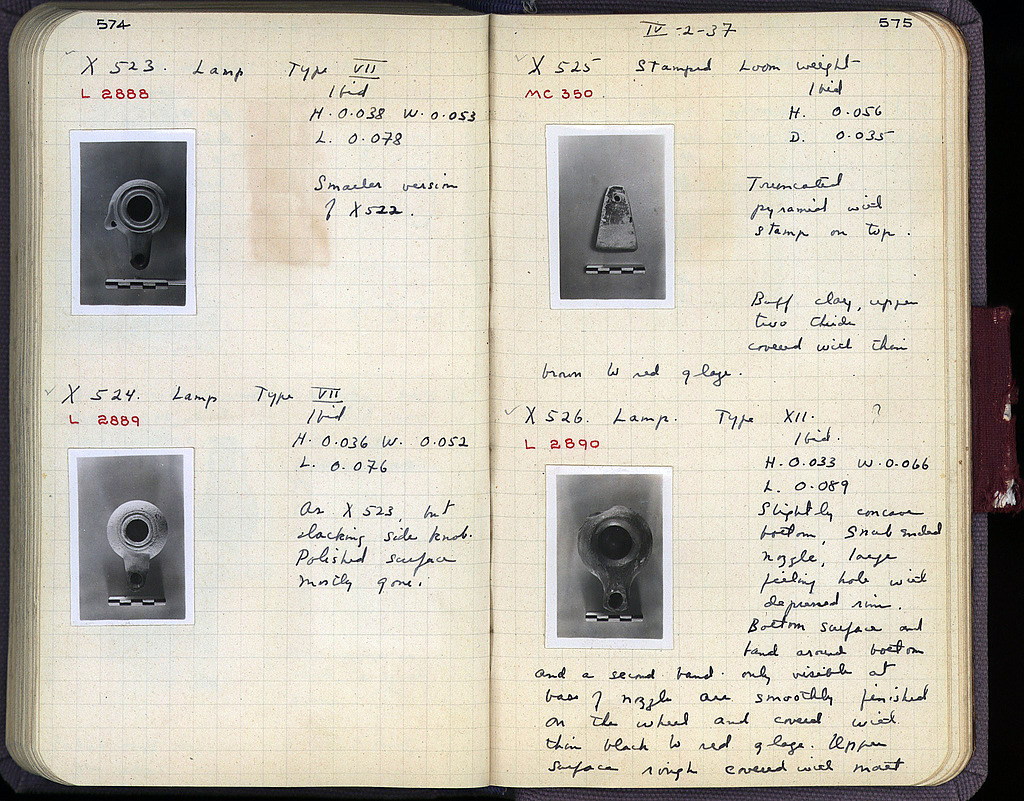 574
X 523. Lamp Type VII
L 2888
Ibid
H. 0.038 W. 0.053
L. 0.078
Smaller version
of X522.
X 524. Lamp Type VII
L 2889
Ibid
H. 0.036 W. 0.052
L. 0.076
As X 523, but
lacking side knob.
Polished surface
mostly gone.
575
IV-2-37
X 525 Stamped Loom weight
MC 350
Ibid
H. 0.056
D. 0.035
Truncated
pyramid with
stamp on top.
Buff clay, upper
two thirds
covered with thin
brown to red glaze.
X 526. Lamp. Type XII. ?
L 2890
Ibid.
H. 0.033 W. 0.066
L. 0.089
Slightly concave
bottom, snub ended
nozzle, large
filling hole with
depressed rim.
Bottom surface and
band around bottom
and a second band only visible at
base of nozzle are smoothly finished
on the wheel and covered with
thin black to red glaze. Upper
surface rough covered with matt